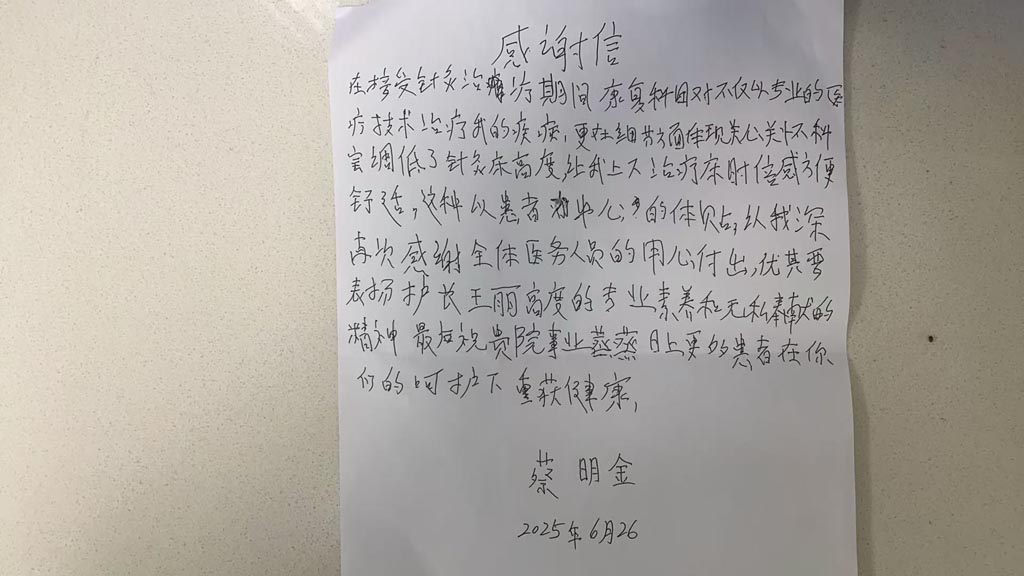 感谢信
在接受针灸治疗期间 康复科团对不仅以专业的医
疗技术治疗我的疾病,更在细节方面体现关心关怀科
室调低了针灸床高度,让我上下治疗床时倍感方便
舒适,这种以患者为中心的体贴,从我深
再次感谢全体医务人员的用心付出,优其要
表扬护长王丽高度的专业素养和无私奉献的
精神 最后祝贵院事业蒸蒸日上更多患者在你
们的呵护下重获健康,
蔡明金
2025年6月26